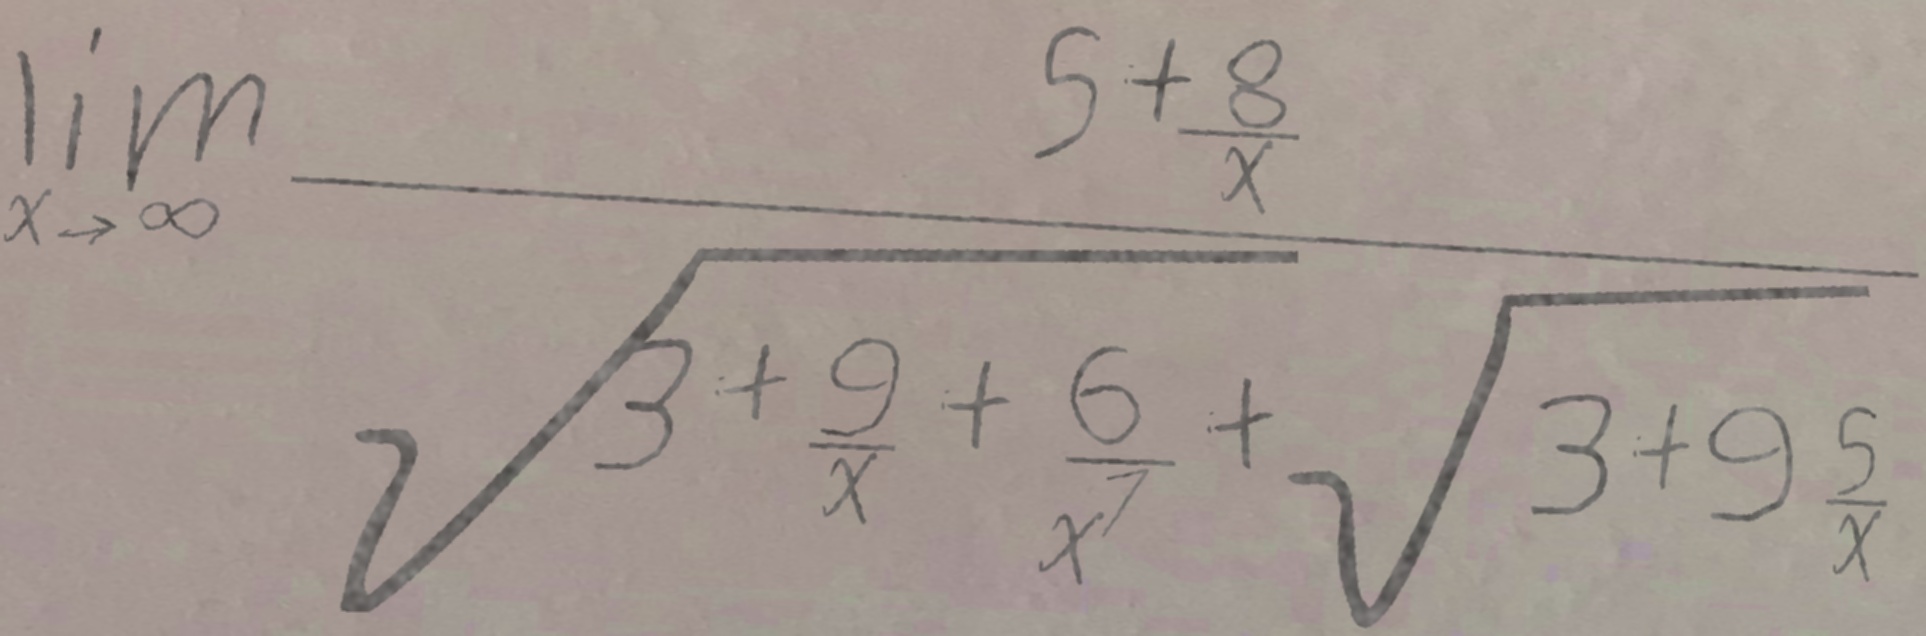 \lim_{x \to \infty} \frac{5 + \frac{8}{x}}{\sqrt{3 + \frac{9}{x} + \frac{6}{x^7}} + \sqrt{3 + 9\frac{5}{x}}}